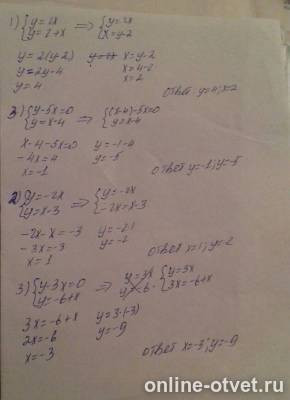 1) {y=2x y=2+x => {y=2x x=y-2
y=2(y-2) x=y-2
y=2y-4 x=4-2
y=4 x=2
ответ y=4; x=2
3) {y-5x=0 y=x-4 => {(x-4)-5x=0 y=x-4
x-4-5x=0 y=-1-4
-4x=4 y=-5
x=-1
ответ y=-1; y=-5
2) {y=-2x y=x-3 => {y=-2x -2x=x-3
-2x-x=-3 y=-2·1
-3x=-3 y=-2
x=1
ответ x=1; y=-2
3) {y-3x=0 y=-6+x => {y=3x 3x=-6+x
3x=-6+x y=3·(-3)
2x=-6 y=-9
x=-3
ответ x=-3; y=-9
online-otvet.ru